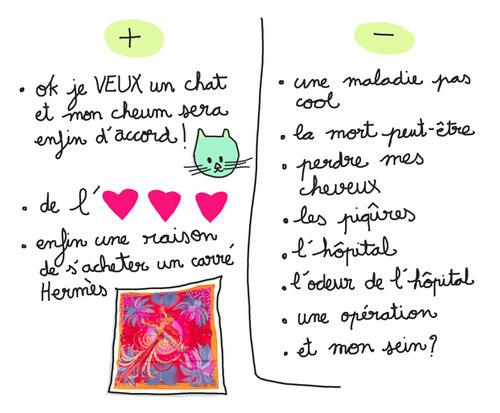 +
• ok je VEUX un chat
et mon cheum sera
enfin d'accord !
• de l'
• enfin une raison
de s'acheter un carré
Hermès
−
• une maladie pas
cool
• la mort peut-être
• perdre mes
cheveux
• les piqûres
• l'hôpital
• l'odeur de l'hôpital
• une opération
• et mon sein ?